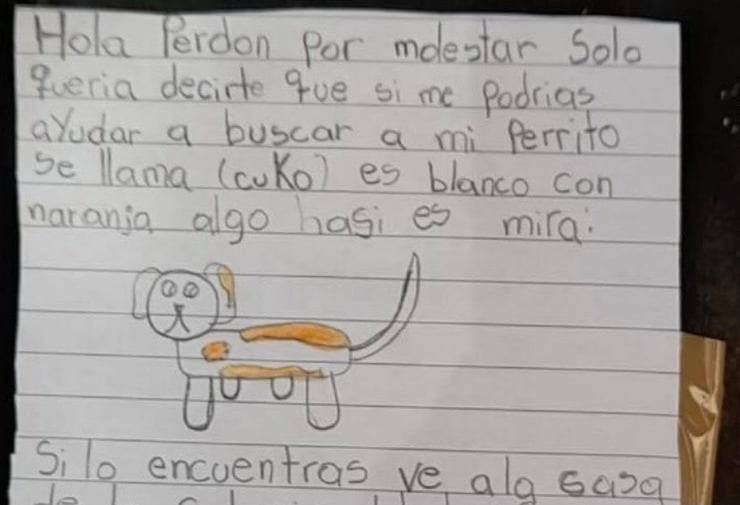 Hola Perdon Por molestar Solo
queria decirte que si me Podrias
aYudar a buscar a mi Perrito
se llama (cuKo) es blanco con
naranja algo hasi es mira:
Si lo encuentras ve ala casa